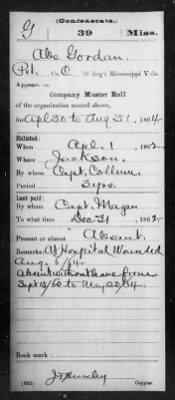 (Confederate.)
G 39 Miss.
Abe Gordan.
Pvt., Co. C, 39 Reg't Mississippi Vols.
Appears on
Company Muster Roll
of the organization named above,
for Apl 30 to Aug 31, 1864
Enlisted:
When Apl. 1, 1862
Where Jackson.
By whom Capt. Collum.
Period 3 yrs.
Last paid:
By whom Capt. Magee
To what time Dec 31, 1862
Present or absent Absent.
Remarks: At Hospital Wounded
Aug. /64.
Absent without leave from
Sept 13/63 to May 22/64.
Book mark:
(642) Copyist.